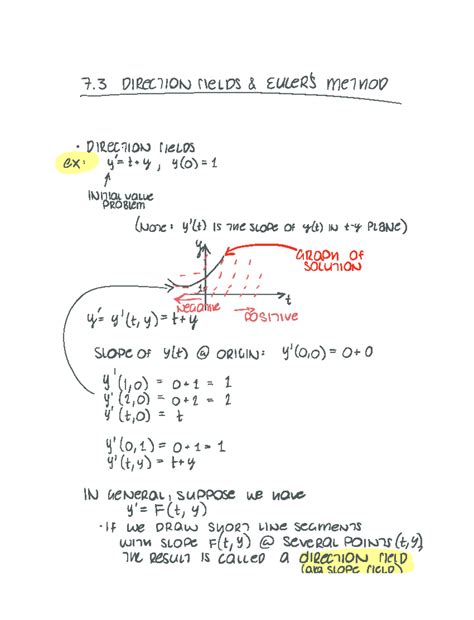 7.3 DIRECTION FIELDS & EULER'S METHOD
• DIRECTION FIELDS
ex: y'=t+y, y(0)=1
INITIAL VALUE
PROBLEM
(NOTE: y'(t) IS THE SLOPE OF y(t) IN t-y PLANE)
y
GRAPH OF
SOLUTION
1
t
NEGATIVE
POSITIVE
y'= y'(t,y)=t+y
SLOPE OF y(t) @ ORIGIN: y'(0,0)=0+0
y'(1,0) = 0+1 = 1
y'(2,0) = 0+2 = 2
y'(t,0) = t
y'(0,1) = 0+1=1
y'(t,y) = t+y
IN GENERAL, SUPPOSE WE HAVE
y'=F(t,y)
• IF WE DRAW SHORT LINE SEGMENTS
WITH SLOPE F(t,y) @ SEVERAL POINTS (t,y),
THE RESULT IS CALLED A DIRECTION FIELD
(aka SLOPE FIELD)